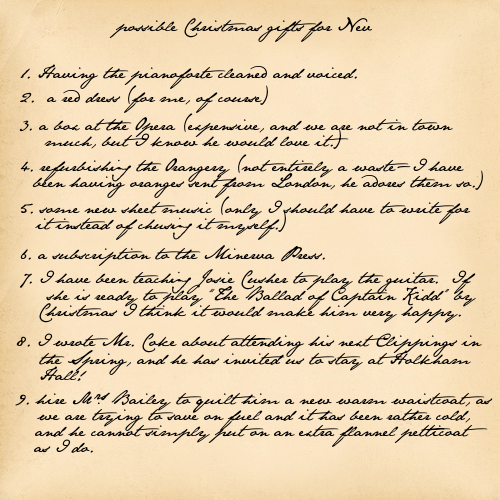 possible Christmas gifts for Nev
1. Having the pianoforte cleaned and voiced.
2. a red dress (for me, of course)
3. a box at the Opera (expensive, and we are not in town
much, but I know he would love it.)
4. refurbishing the Orangery (not entirely a waste– I have
been having oranges sent from London, he adores them so.)
5. some new sheet music (only I should have to write for
it instead of chusing it myself.)
6. a subscription to the Minerva Press.
7. I have been teaching Josie Cusher to play the guitar. If
she is ready to play "The Ballad of Captain Kidd" by
Christmas I think it would make him very happy.
8. I wrote Mr. Coke about attending his next Clippings in
the Spring, and he has invited us to stay at Holkham
Hall!
9. hire Mrs Bailey to quilt him a new warm waistcoat, as
we are trying to save on fuel and it has been rather cold,
and he cannot simply put on an extra flannel petticoat
as I do.